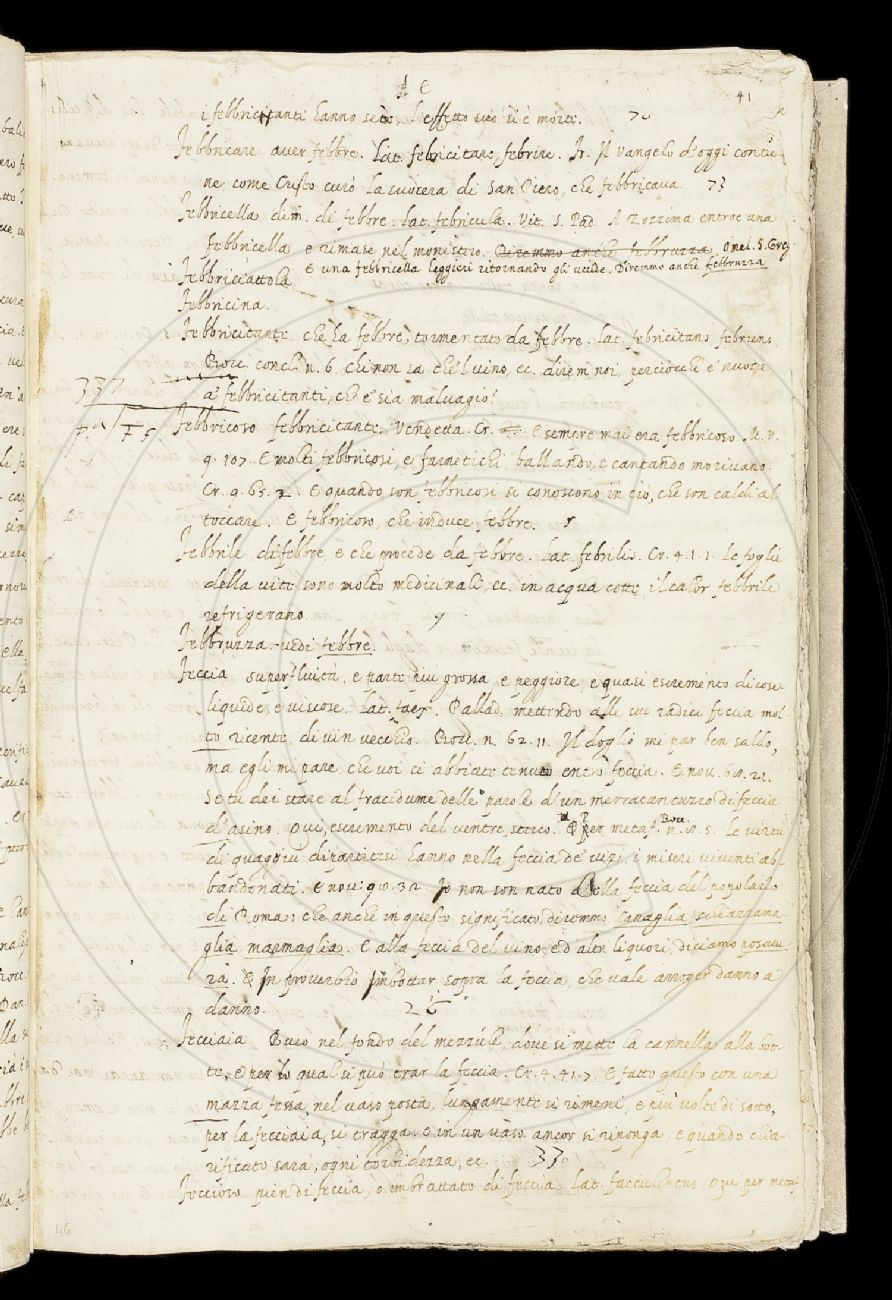 41
i febbricitanti hanno sete, l'effetto suo si è morte.
Febbricare aver febbre. Lat. febricitare, febrire. Fr. Il vangelo d'oggi contie-
ne come Cristo curò la suocera di San Piero, che febbricava.
Febbricella dim. di febbre. Lat. febricula. Vit. S. Pad. A Zozzima entroe una
febbricella e rimase nel monistero. Diremmo anche febbruzza. One. S. Greg.
E una febbricella leggieri ritornando gli uccide. Diremmo anche febbruzza
Febbriciattola
Febbricina.
Febbricitante che ha febbre, tormentato da febbre. Lat. febricitans febriens.
Bocc. concl. n. 6. chi non sa che 'l vino, ec. direm noi, perciocchè e' nuoce
a' febbricitanti, che e' sia malvagio?
337
Febbricoso febbricitante. Vendetta. Cr. E sempre mai era febbricoso. M. V.
9. 107. E molti febbricosi, e farnetichi ballando, e cantando morivano.
Cr. 9. 65. 2. E quando son febbricosi si conoscono in ciò, che son caldi al
toccare. E febbricoso, che induce febbre.
Febbrile di febbre, e che procede da febbre. Lat. febrilis. Cr. 4. 1. 1. Le foglie
della vite sono molto medicinali, ec. in acqua cotte il calor febbrile
refrigerano.
Febbruzza. vedi febbre.
Feccia superfluità, e parte più grossa, e peggiore, e quasi escremento di cose
liquide, e viscose. Lat. faex. Pallad. mettendo alle sue radici feccia mol-
to ricente di vin vecchio. Bocc. n. 62. 11. Il doglio mi par ben saldo,
ma egli mi pare che voi ci abbiate tenuto entro feccia. E nov. 68. 21.
Se tu dei stare al fracidume delle parole d'un mercatantuzzo di feccia
d'asino. qui, escremento del ventre, sterco. Per metaf. Bocc. n. 5. Le virtù
di quaggiù dipartitesi hanno nella feccia de' vizi i miseri viventi ab-
bandonati. E nov. 98. 32. Io non son nato della feccia del popolazzo
di Roma: che anche in questo significato diremmo Canaglia, schiazzama-
glia marmaglia. E alla feccia del vino, ed altri liquori diciamo posatu-
ra. In proverbio Imbottar sopra la feccia, che vale arroger danno a
danno.
Fecciaia Buco nel fondo del mezzule, dove si mette la cannella alla bot-
te, e per lo qual si può trar la feccia. Cr. 4. 41. 7. E fatto questo con una
mazza fessa nel vaso posta, lungamente si rimeni, e più volte di sotto,
per la fecciaia, si tragga. e in un vaso ancor si riponga. e quando chia-
rificato sarà, ogni torbidezza, ec. 33
Feccioso pien di feccia, o imbrattato di feccia. Lat. faeculentus. Qui per metaf.